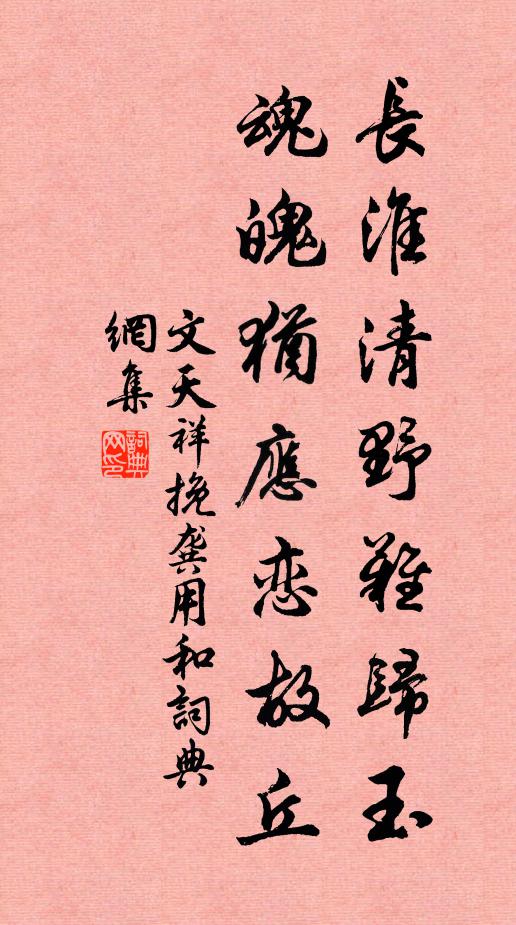 長淮清野難歸玉
魂魄猶應恋故丘
文天祥挽龔用和詞典
網集
詞典网印